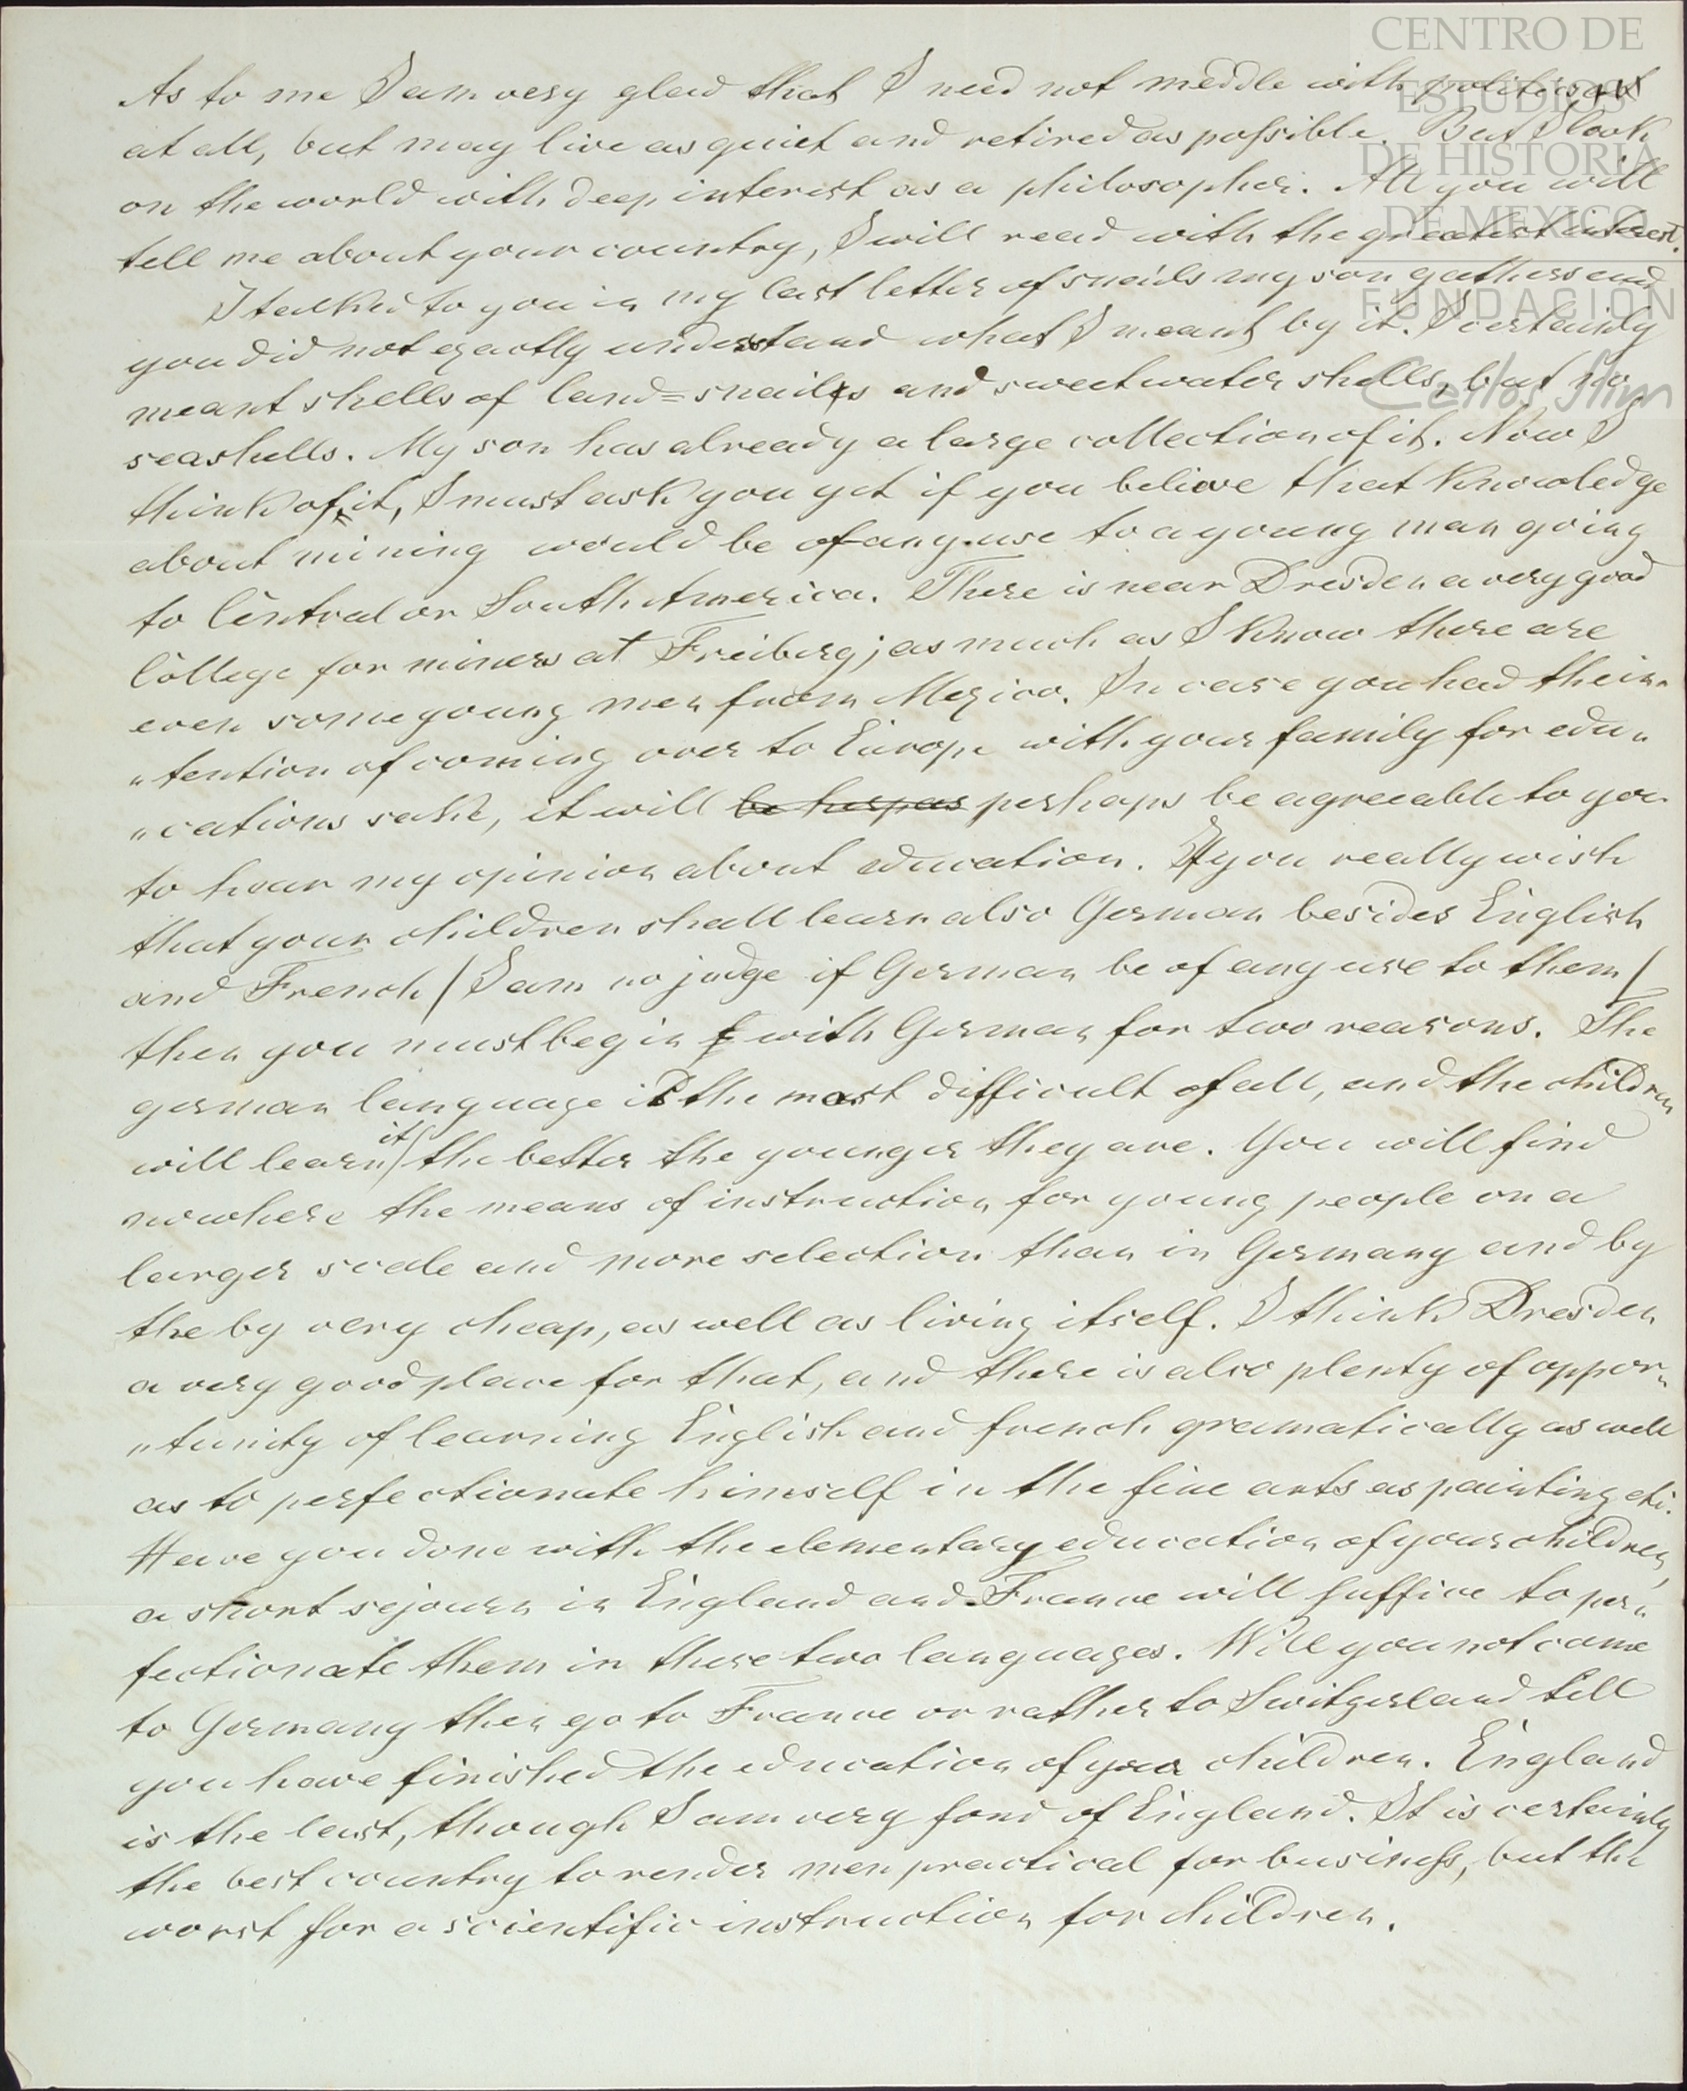 CENTRO DE
ESTUDIOS
DE HISTORIA
DE MEXICO
FUNDACIÓN
Carlos Slim
As to me I am very glad that I need not meddle with politics
at all, but may live as quiet and retired as possible. But I look
on the world with deep interest as a philosopher. All you will
tell me about your country, I will read with the greatest interest.
I talked to you in my last letter of snails my son gathers and
you did not exactly understand what I meant by it. I certainly
meant shells of land=snails and sweetwater shells, but no
seashells. My son has already a large collection of it. Now I
think of it, I must ask you yet if you believe that knowledge
about mining would be of any use to a young man going
to Central or South America. There is near Dresden a very good
College for miners at Freiberg; as much as I know there are
even some young men from Mexico. In case you had the in„
„tention of coming over to Europe with your family for edu„
„cations sake, it will be herpas perhaps be agreeable to you
to hear my opinion about education. If you really wish
that your children shall learn also German besides English
and French / I am no judge if German be of any use to them /
then you must begin f with German for two reasons. The
german language is the most difficult of all, and the children
will learn it the better the younger they are. You will find
nowhere the means of instruction for young people on a
larger scale and more selection than in Germany and by
the by very cheap, as well as living itself. I think Dresden
a very good place for that, and there is also plenty of oppor„
„tunity of learning English and french gramatically as well
as to perfectionate himself in the fine arts as painting etc.
Have you done with the elementary education of your children,
a short sejourn in England and France will suffice to per„
fectionate them in these two languages. Will you not come
to Germany then go to France or rather to Switzerland till
you have finished the education of your children. England
is the last, though I am very fond of England. It is certainly
the best country to render men practical for business, but the
worst for a scientific instruction for children.